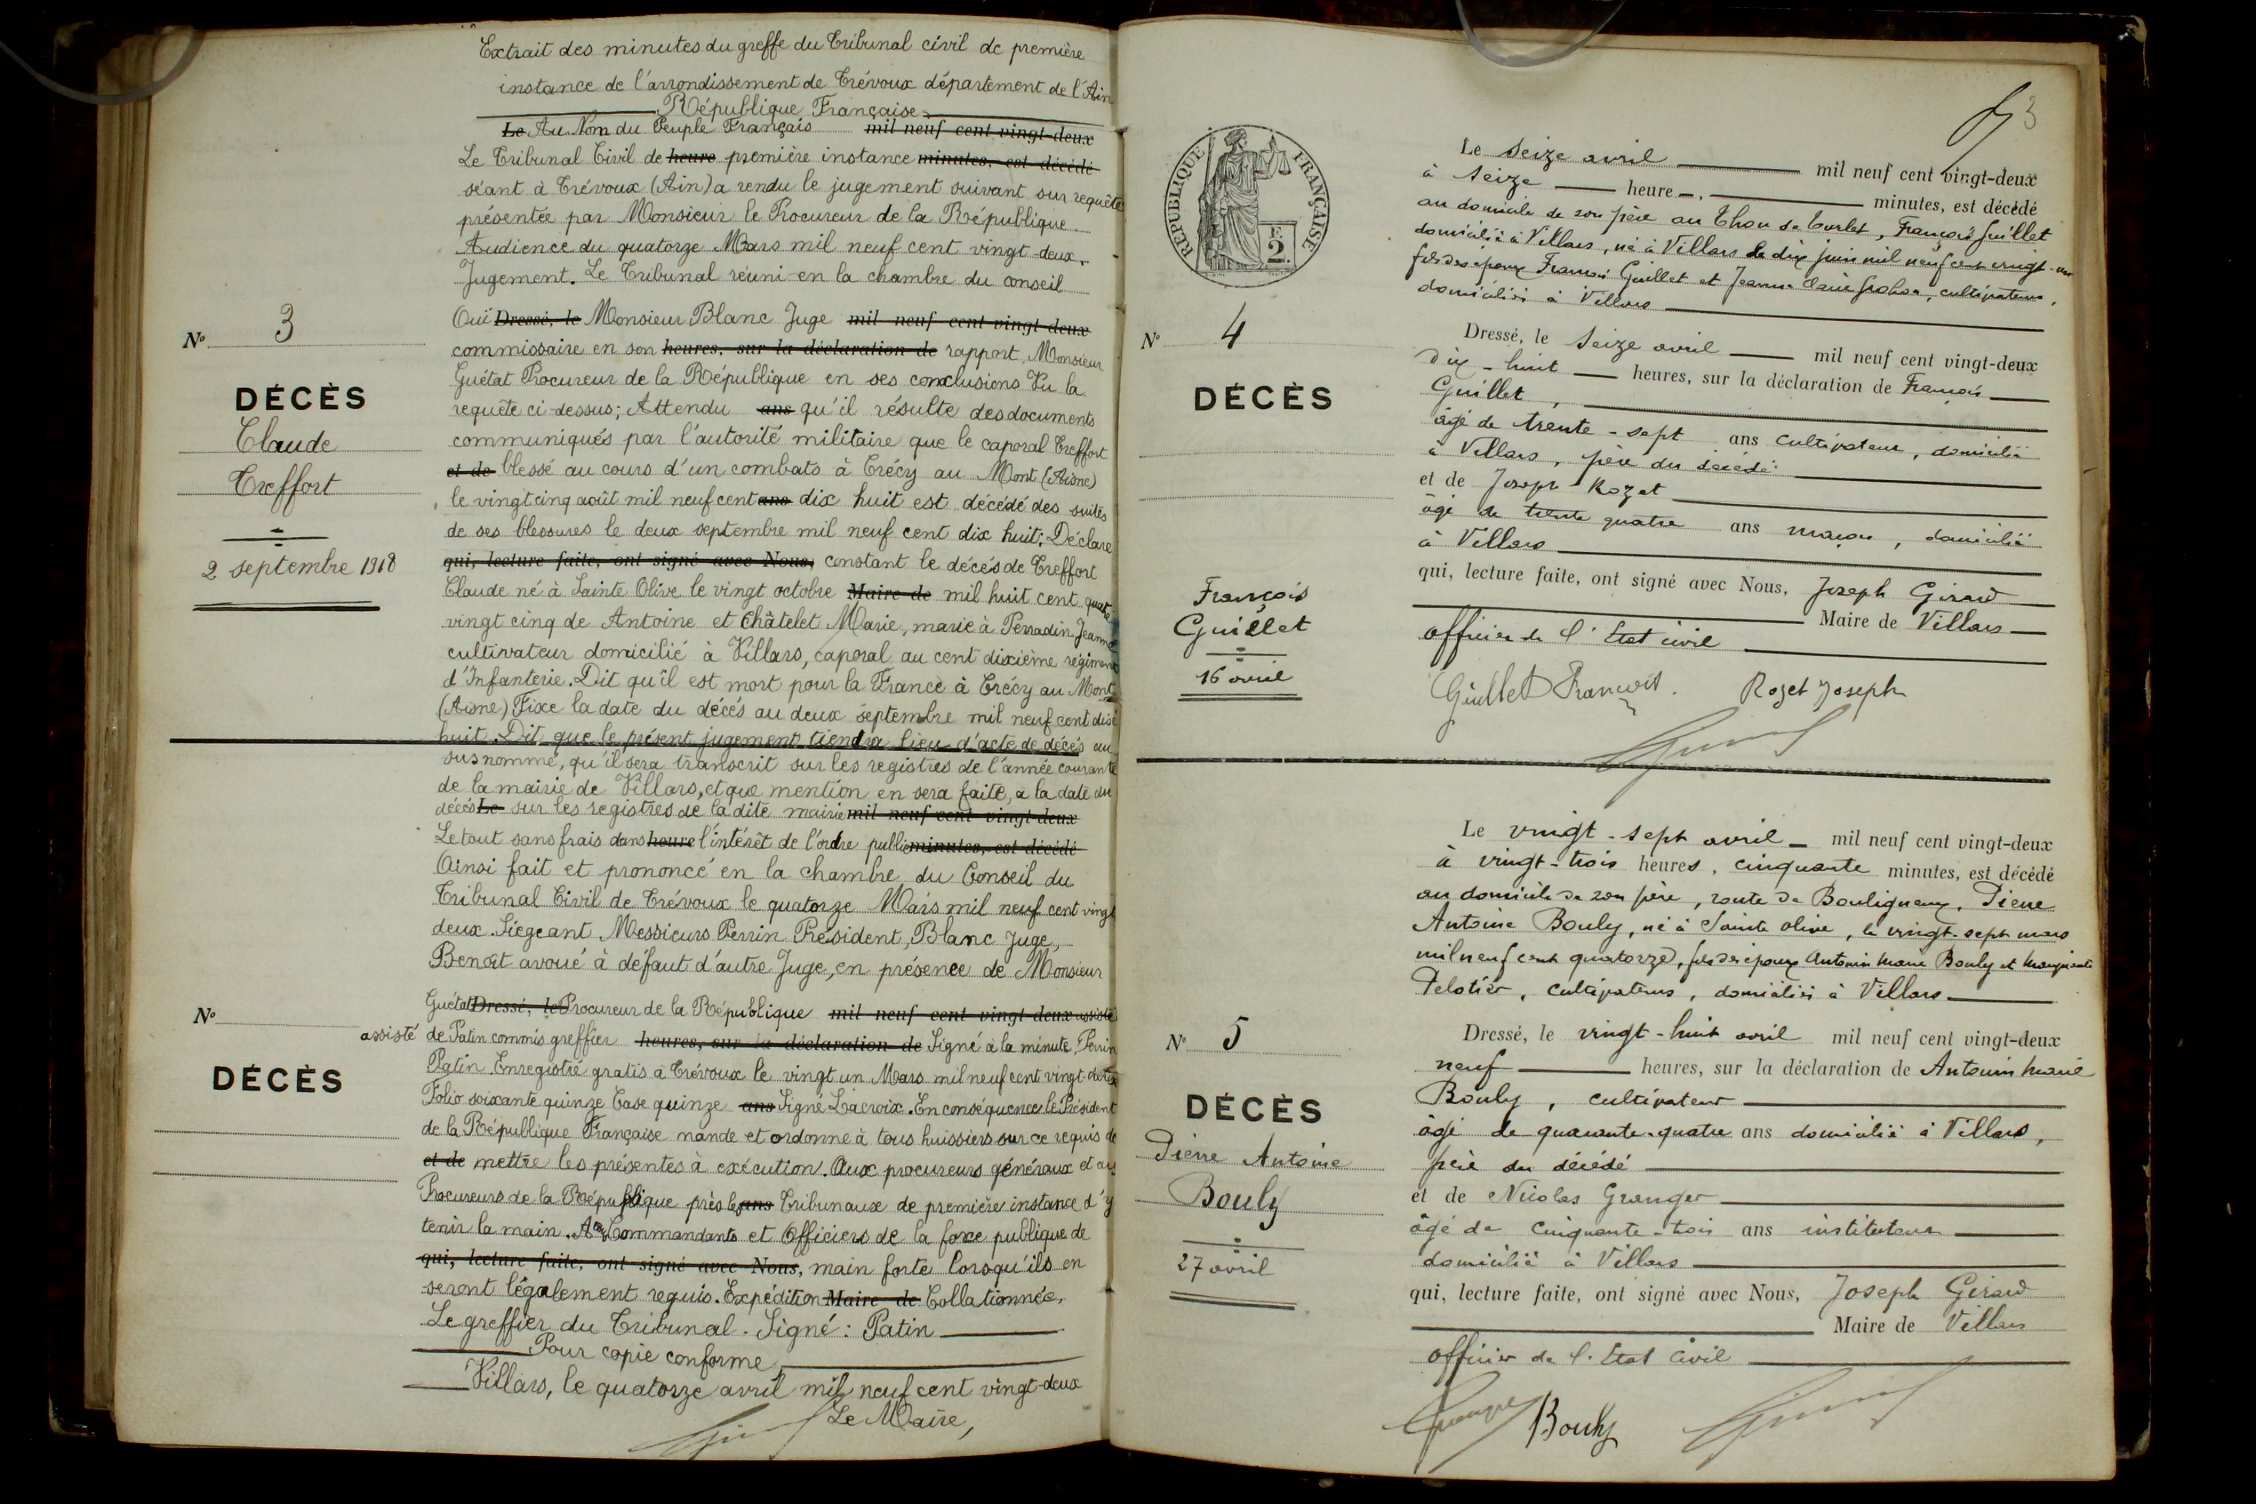 Extrait des minutes du greffe du Tribunal civil de première
instance de l'arrondissement de Trévoux département de l'Ain
République Française
Le Au Nom du Peuple Français mil neuf cent vingt-deux
Le Tribunal Civil de heure première instance minutes, est décédé
séant à Trévoux (Ain) a rendu le jugement suivant sur requête
présentée par Monsieur le Procureur de la République
Audience du quatorze Mars mil neuf cent vingt-deux.
Jugement. Le Tribunal réuni en la chambre du conseil
Ouï Dressé, le Monsieur Blanc Juge mil neuf cent vingt-deux
commissaire en son heures, sur la déclaration de rapport, Monsieur
Guétat Procureur de la République en ses conclusions Vu la
requête ci-dessus; Attendu ans qu'il résulte des documents
communiqués par l'autorité militaire que le caporal Treffort
et de blessé au cours d'un combats à Crécy au Mont (Aisne)
le vingt cinq août mil neuf cent ans dix huit est décédé des suites
de ses blessures le deux septembre mil neuf cent dix huit; Déclare
qui, lecture faite, ont signé avec Nous, constant le décés de Treffort
Claude né à Sainte Olive le vingt octobre Maire de mil huit cent quatre
vingt cinq de Antoine et Châtelet Marie, marié à Perradin Jeanne
cultivateur domicilié à Villars, caporal au cent dixième régiment
d'Infanterie. Dit qu'il est mort pour la France à Crécy au Mont
(Aisne) Fixe la date du décés au deux septembre mil neuf cent dix
huit. Dit que le présent jugement tiendra lieu d'acte de décés au
susnommé, qu'il sera transcrit sur les registres de l'année courante
de la mairie de Villars, et que mention en sera faite, a la date du
décés Le sur les registres de la dite mairie mil neuf cent vingt-deux
Le tout sans frais dans heure l'intérêt de l'ordre public minutes, est décédé
Ainsi fait et prononcé en la chambre du Conseil du
Tribunal Civil de Trévoux le quatorze Mars mil neuf cent vingt
deux. Siégeant Messieurs Perrin Président, Blanc Juge,
Benoît avoué à défaut d'autre Juge, en présence de Monsieur
Guétat Dressé, le Procureur de la République mil neuf cent vingt-deux assisté
assisté de Patin commis greffier heures, sur la déclaration de Signé à la minute, Perrin
Patin. Enregistré gratis à Trévoux le vingt un Mars mil neuf cent vingt deux
Folio soixante quinze Case quinze ans Signé Lacroix. En conséquence le Président
de la République Française mande et ordonne à tous huissiers sur ce requis de
et de mettre les présentes à exécution. Aux procureurs généraux et aux
Procureurs de la République près les ans Tribunaux de première instance d'y
tenir la main. Aux Commandants et Officiers de la force publique de
qui, lecture faite, ont signé avec Nous, main forte lorsqu'ils en
seront légalement requis. Expédition Maire de Collationnée.
Le greffier du Tribunal. Signé: Patin
Pour copie conforme
Villars, le quatorze avril mil neuf cent vingt-deux
Le Maire,
No 3
DÉCÈS
Claude
Treffort
2 septembre 1918
No
DÉCÈS
3
RÉPUBLIQUE FRANÇAISE
2.
Le seize avril mil neuf cent vingt-deux
à seize heure , minutes, est décédé
au domicile de son père au Thou de Corlet, François Guillet
domicilié à Villars, né à Villars le dix juin mil neuf cent vingt-un
fils des époux François Guillet et Jeanne Marie, cultivateurs,
domiciliés à Villars
Dressé, le seize avril mil neuf cent vingt-deux
dix-huit heures, sur la déclaration de François
Guillet,
âgé de trente-sept ans cultivateur, domicilié
à Villars, père du décédé
et de Joseph Rozet
âgé de trente quatre ans maçon, domicilié
à Villars
qui, lecture faite, ont signé avec Nous, Joseph Girard
Maire de Villars
officier de l'Etat civil
Guillet François. Rozet Joseph
No 4
DÉCÈS
François
Guillet
16 avril
Le vingt-sept avril mil neuf cent vingt-deux
à vingt-trois heures, cinquante minutes, est décédé
au domicile de son père, route de Bouligneux, Pierre
Antoine Bouly, né à Sainte olive, le vingt-sept mars
mil neuf cent quatorze, fils des époux Antonin Marie Bouly et Marguerite
Pelotier, cultivateurs, domiciliés à Villars
Dressé, le vingt-huit avril mil neuf cent vingt-deux
neuf heures, sur la déclaration de Antonin Marie
Bouly, cultivateur
âgé de quarante-quatre ans domicilié à Villars,
père du décédé
et de Nicolas Granger
âgé de cinquante-trois ans instituteur
domicilié à Villars
qui, lecture faite, ont signé avec Nous, Joseph Girard
Maire de Villars
officier de l'Etat Civil
Granger Bouly
No 5
DÉCÈS
Pierre Antoine
Bouly
27 avril